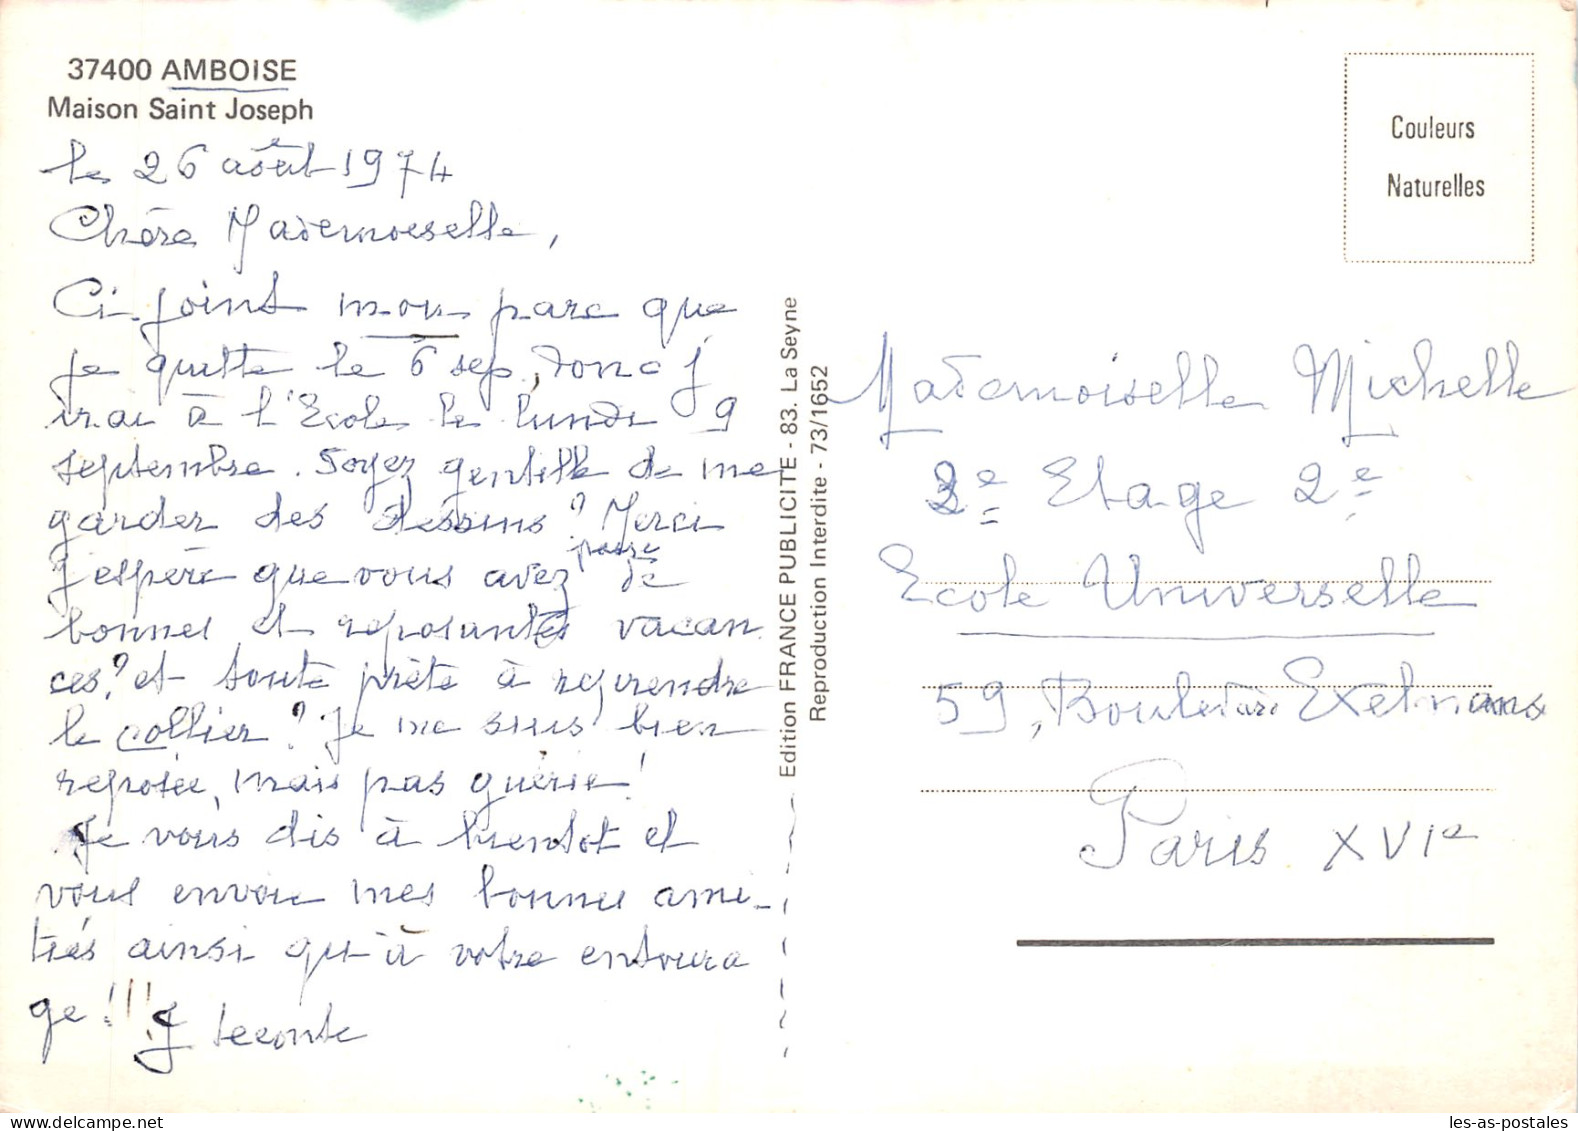 37400 AMBOISE
Maison Saint Joseph
le 26 août 1974
Chère Mademoiselle,
Ci-joint mon parc que
je quitte le 6 sep, donc j
irai à l'Ecole le lundi 9
septembre. Soyez gentille de me
garder des dessins ? Merci
J'espère que vous avez passé de
bonnes et reposantes vacan
ces ? et toute prête à reprendre
le collier ? Je me suis bien
reposée, mais pas guérie !
Je vous dis à bientôt et
vous envoie mes bonnes ami-
tiés ainsi qu'à votre entoura
ge !!! J Leconte
Edition FRANCE PUBLICITE - 83. La Seyne
Reproduction Interdite - 73/1652
Couleurs
Naturelles
Mademoiselle Michelle
2e Etage 2e
Ecole Universelle
59, Boulevard Exelmans
Paris XVIe
les-as-postales